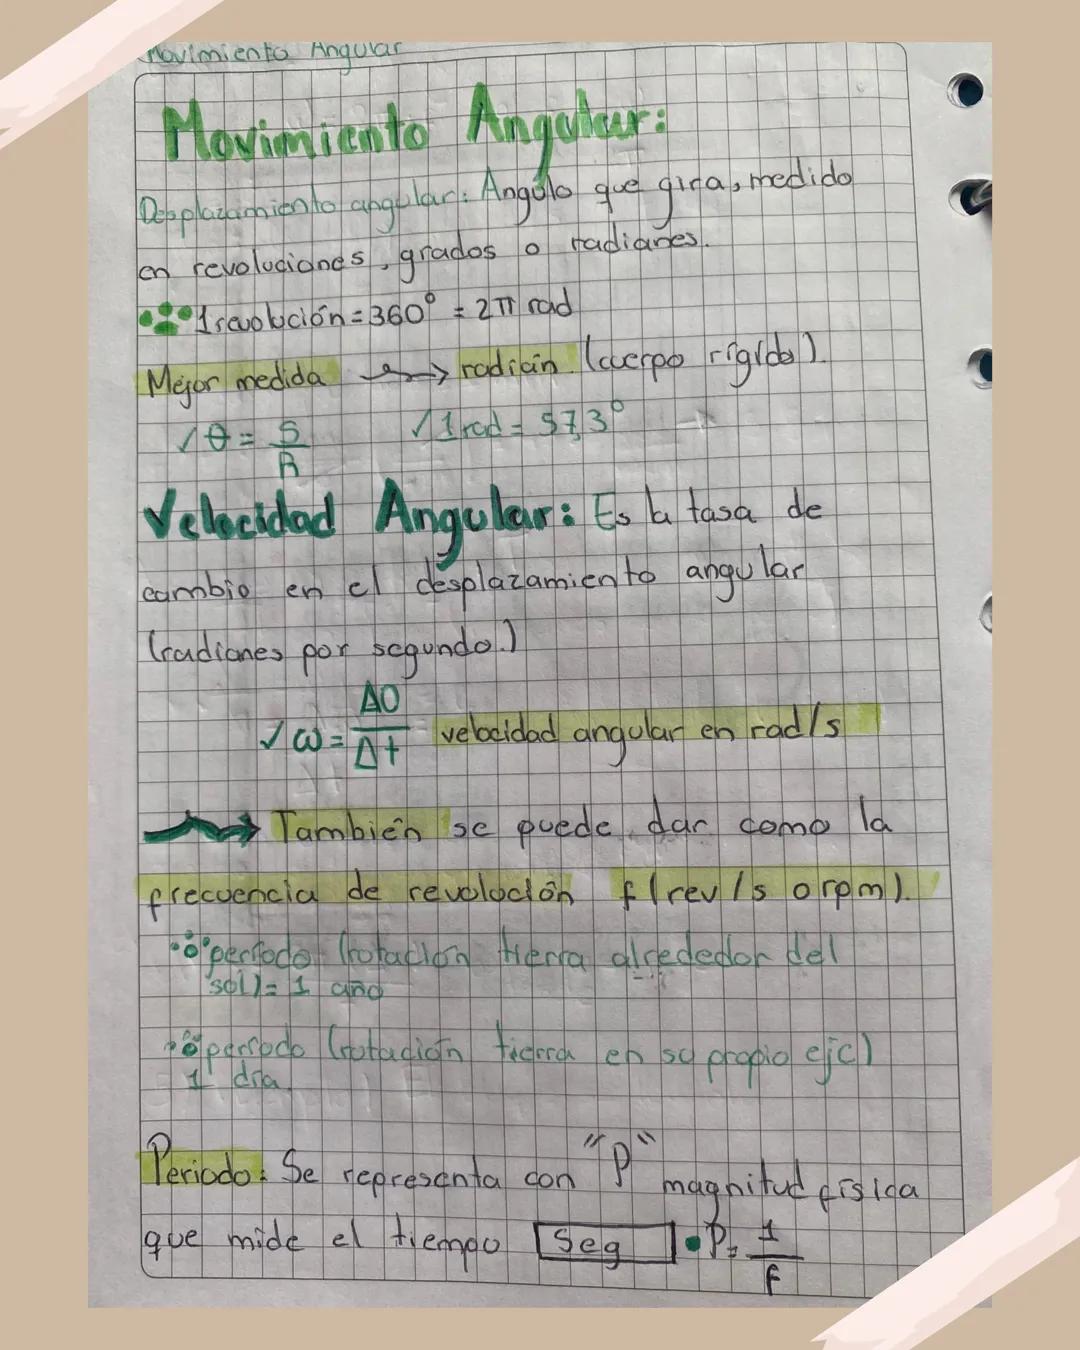 Movimiento Angular
Movimiento Angular:
Desplazamiento angular: Angulo que gira, medido
en revoluciones, grados o radianes.
1 revolución = 360° = 2π rad
Mejor medida → radián (cuerpo rígido).
✓ θ = S/R ✓ 1 rad = 57,3°
Velocidad Angular: Es la tasa de
cambio en el desplazamiento angular
(radianes por segundo.)
✓ ω = ΔO/Δt velocidad angular en rad/s
→ También se puede dar como la
frecuencia de revolución f (rev/s o rpm).
período (rotación tierra alrededor del
sol) = 1 año
período (rotación tierra en su propio eje)
1 día
Periodo: Se representa con "P" magnitud física
que mide el tiempo Seg • P = 1/f